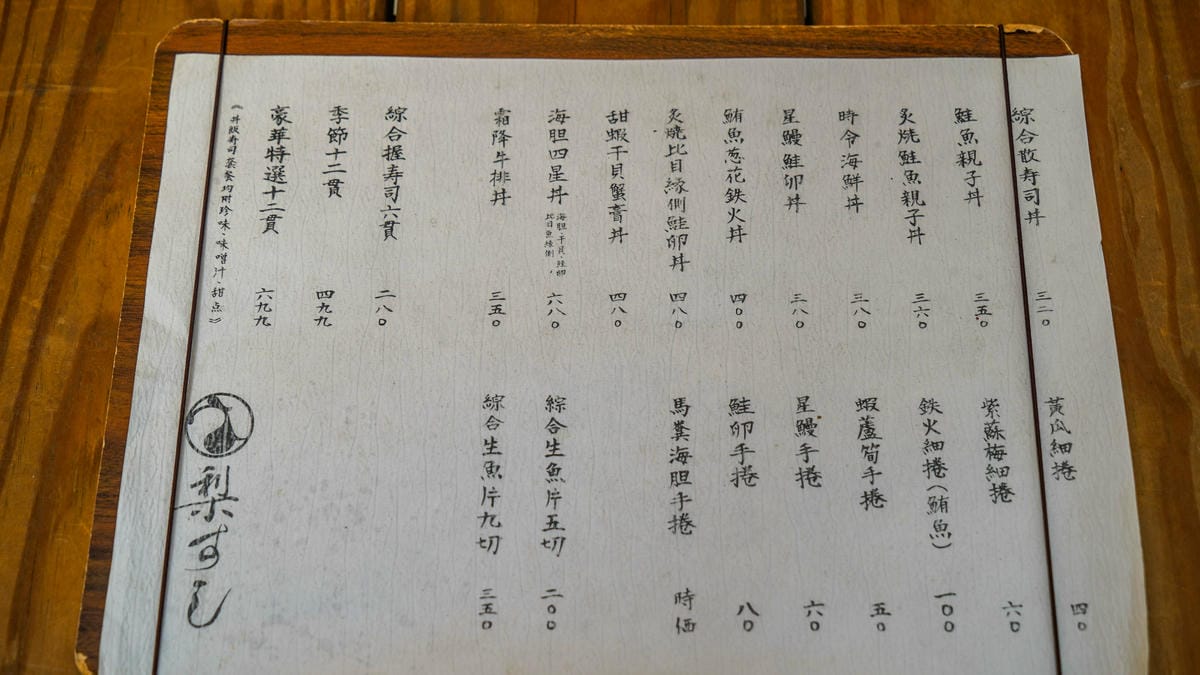 綜合散寿司丼 三二〇
鮭魚親子丼 三五〇
炙焼鮭魚親子丼 三六〇
時令海鮮丼 三八〇
星鰻鮭卵丼 三八〇
鮪魚葱花鉄火丼 四〇〇
炙焼比目縁側鮭卵丼 四八〇
甜蝦干貝蟹膏丼 四八〇
海胆四星丼 海胆、干貝、鮭卵、比目魚縁側 六八〇
霜降牛排丼 三五〇
綜合握寿司六貫 二八〇
季節十二貫 四九九
豪華特選十二貫 六九九
《丼飯寿司套餐均附珍味、味噌汁、甜点》
黃瓜細捲 四〇
紫蘇梅細捲 六〇
鉄火細捲(鮪魚) 一〇〇
蝦蘆筍手捲 五〇
星鰻手捲 六〇
鮭卵手捲 八〇
馬糞海胆手捲 時価
綜合生魚片五切 二〇〇
綜合生魚片九切 三五〇
梨すし